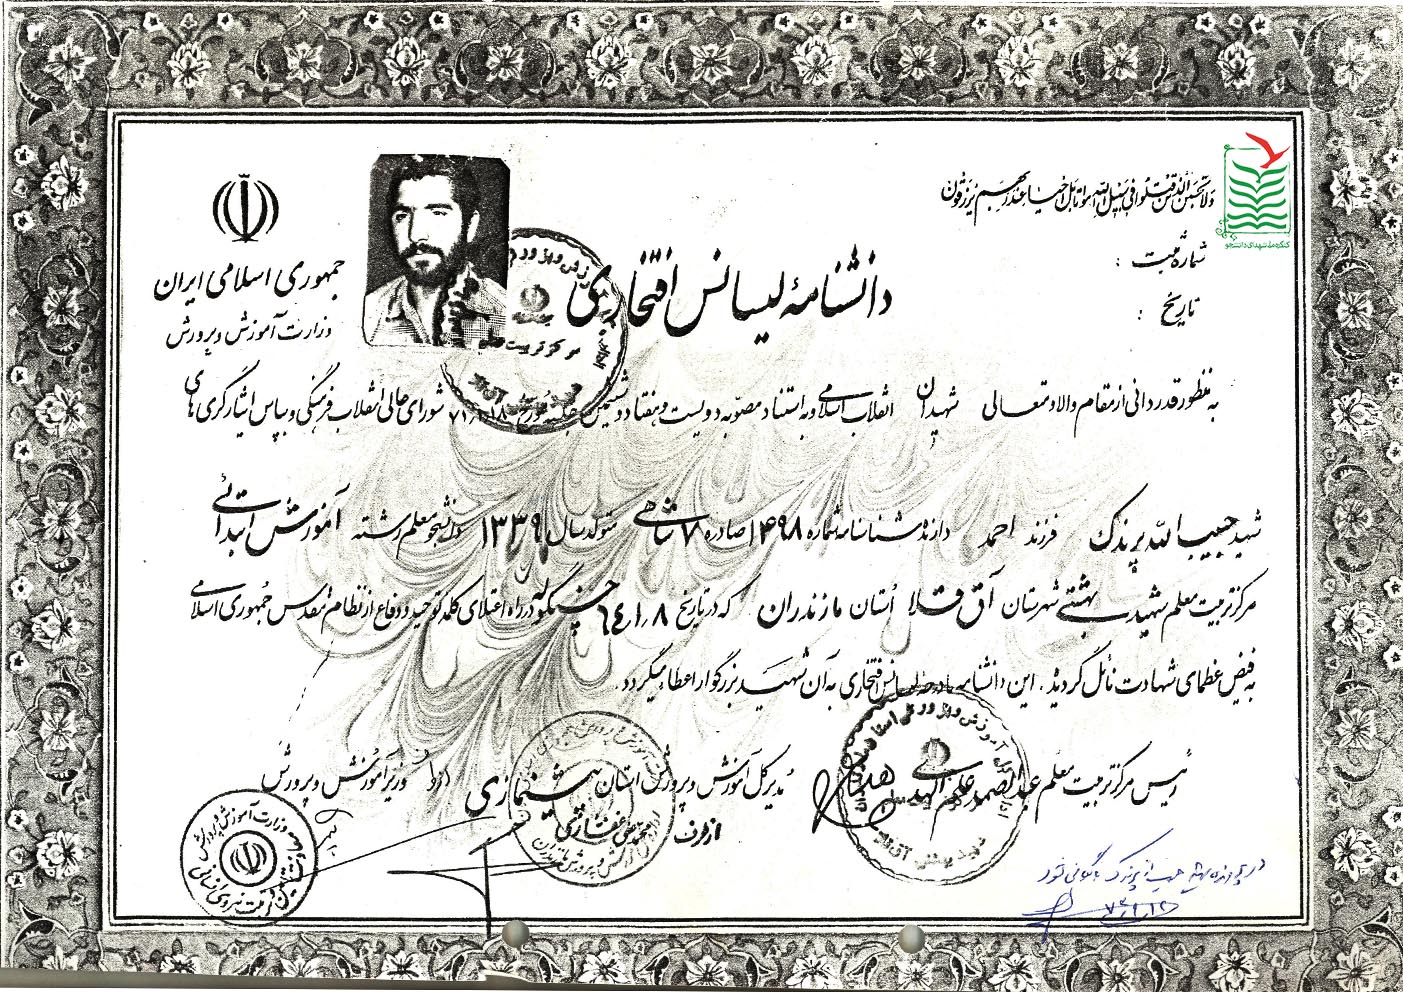 ولا تحسبن الذین قتلوا فی سبیل الله امواتا بل احیاء عند ربهم یرزقون
کنگره ملی شهدای دانشجو
جمهوری اسلامی ایران
وزارت آموزش و پرورش
دانشنامهٔ لیسانس افتخاری
شماره ثبت :
تاریخ :
مرکز تربیت
به منظور قدردانی از مقام والا و متعالی شهیدان انقلاب اسلامی و به استناد مصوّبه دویست و هفتاد و ششمین جلسه مورخ شورای عالی انقلاب فرهنگی و بپاس ایثارگری های
شهید حبیب اللّه پرندک فرزند احمد دارنده شناسنامه شماره ۱۴۹۸ صادره ۷ شاهی متولد سال ۱۳۳۹ دانشجو معلم رشته آموزش ابتدائی
مرکز تربیت معلم شهید بهشتی شهرستان آق قلا استان مازندران که در تاریخ ۶۴/۱/۸ در راه اعتلای کلمه توحید و دفاع از نظام مقدس جمهوری اسلامی
به فیض عظمای شهادت نائل گردید. این دانشنامه با درجه لیسانس افتخاری به آن شهید بزرگوار اعطاء میگردد.
رئیس مرکز تربیت معلم عبدالصمد علم الهدی
مدیرکل آموزش و پرورش استان
از طرف
وزیر آموزش و پرورش